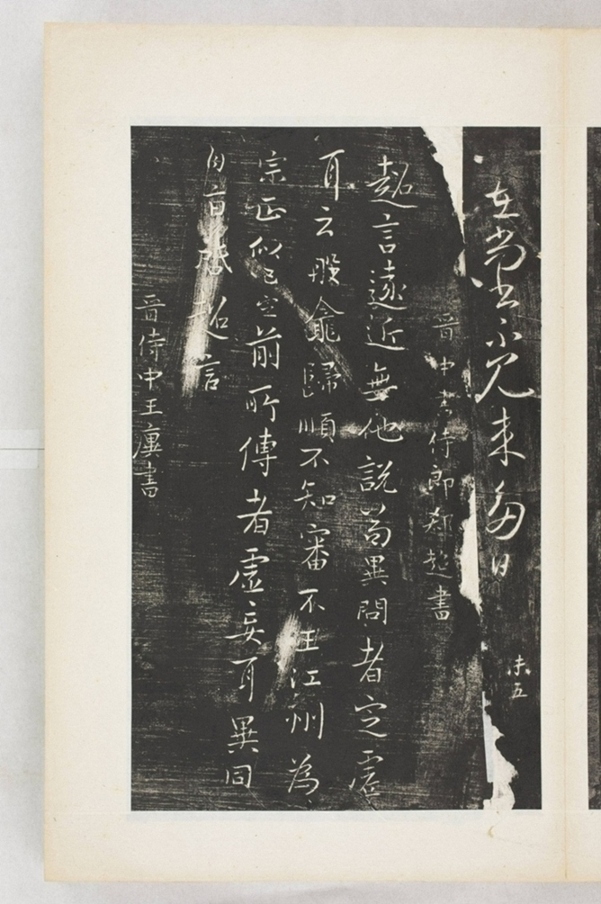 在尚書不見來多日
未五
晉中書侍郎郗超書
超言遠近無他說苟異問者定虛
耳云殷龕歸順不知審不王江州為
宗正似已定前所傳者虛妄耳異同
自旨孫超言
晉侍中王廙書